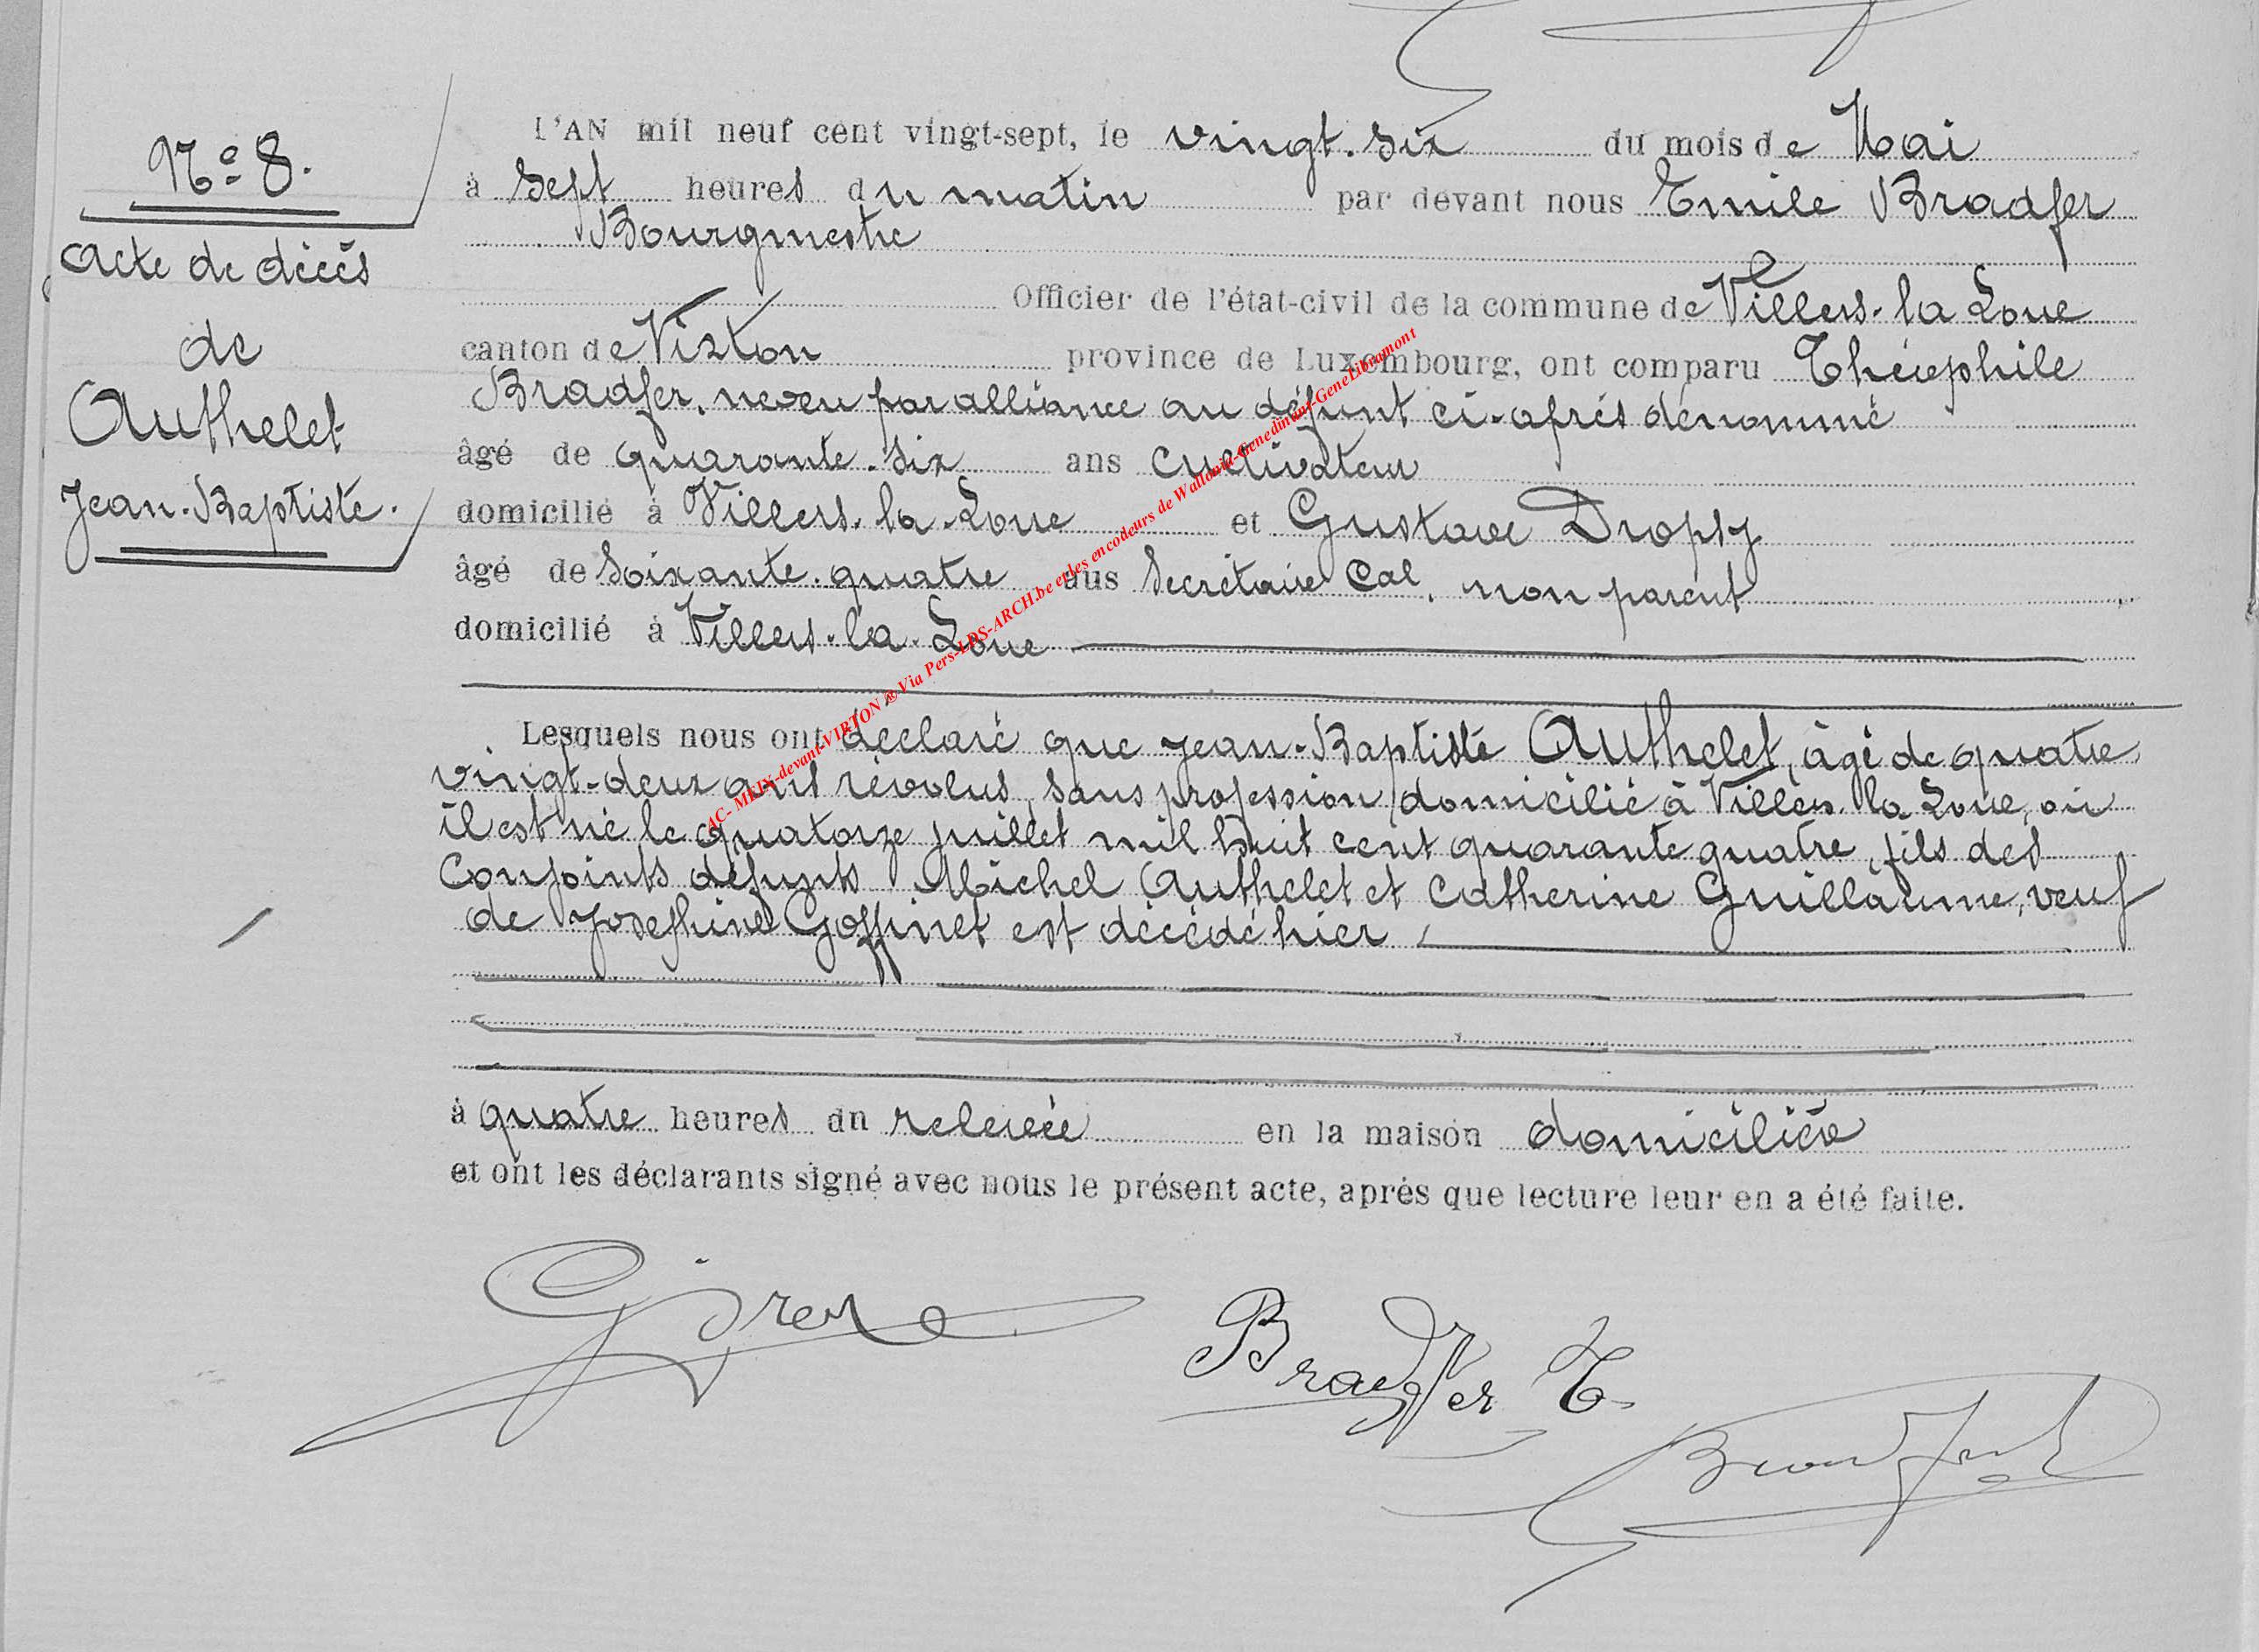 N° 8.
Acte de décès
de
Authelet
Jean-Baptiste.
L'AN mil neuf cent vingt-sept, le vingt-six du mois de Mai
à sept heures du matin par devant nous Emile Bradfer
Bourgmestre
Officier de l'état-civil de la commune de Villers-la-Loue
canton de Virton province de Luxembourg, ont comparu Théophile
Bradfer, neveu par alliance au défunt ci-après dénommé
âgé de quarante-six ans cultivateur
domicilié à Villers-la-Loue et Gustave Dropsy
âgé de soixante-quatre ans secrétaire Cal, non parent
domicilié à Villers-la-Loue
Lesquels nous ont déclaré que Jean-Baptiste Authelet, âgé de quatre
vingt-deux ans révolus, sans profession, domicilié à Villers-la-Loue, où
il est né le quatorze juillet mil huit cent quarante quatre, fils des
conjoints défunts Michel Authelet et Catherine Guillaume, veuf
de Joséphine Goffinet est décédé hier,
à quatre heures du relevée en la maison domicilière
et ont les déclarants signé avec nous le présent acte, après que lecture leur en a été faite.
Bradfer T.
AC- MEIX-devant-VIRTON ® Via Pers-LDS-ARCH.be et les encodeurs de Wallonia-Genedinant-GeneLibramont